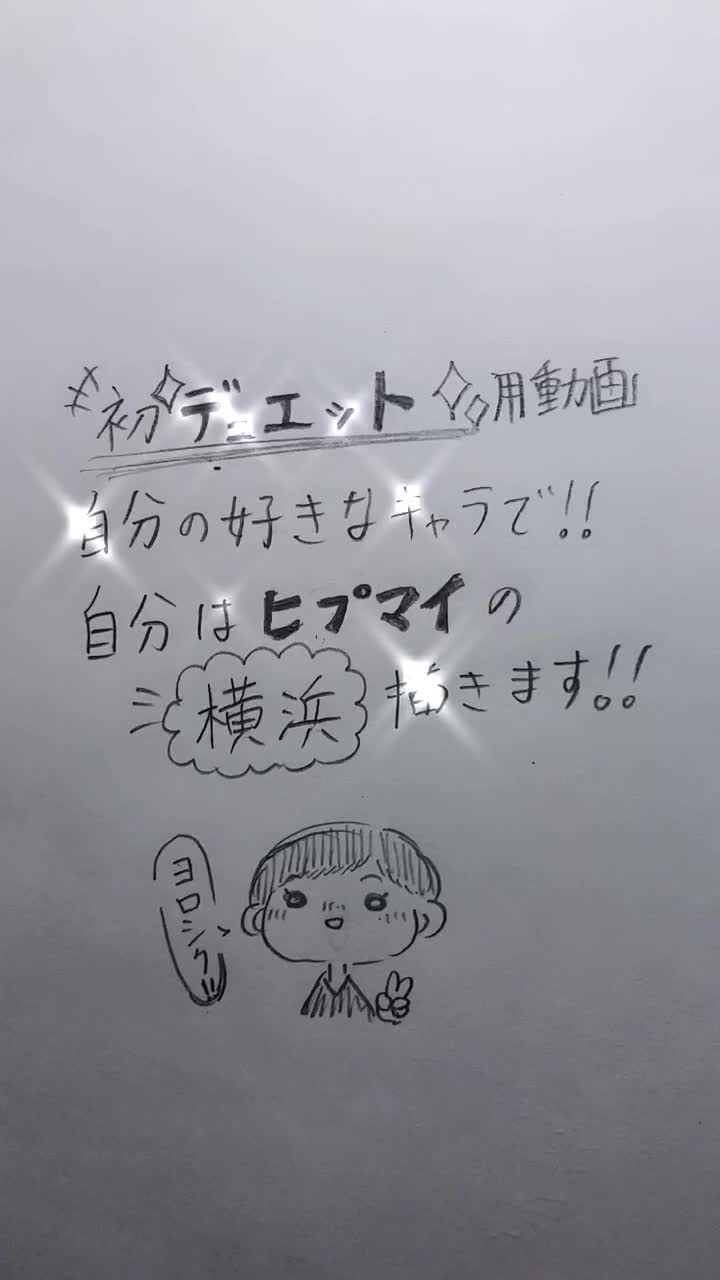 初デュエット用動画
自分の好きなキャラで!!
自分はヒプマイの
横浜 描きます!!
ヨロシク!!